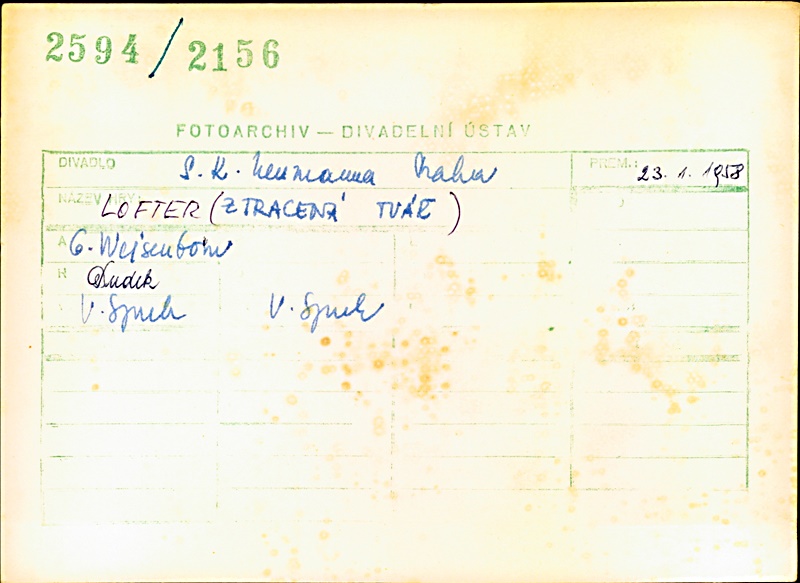 2594/2156
FOTOARCHIV — DIVADELNÍ ÚSTAV
DIVADLO S. K. Neumanna Praha PREM.: 23. 1. 1958
NÁZEV HRY: LOFTER (ZTRACENÁ TVÁŘ)
A G. Weisenborn
R Dudek
V. Špuch V. Špuch